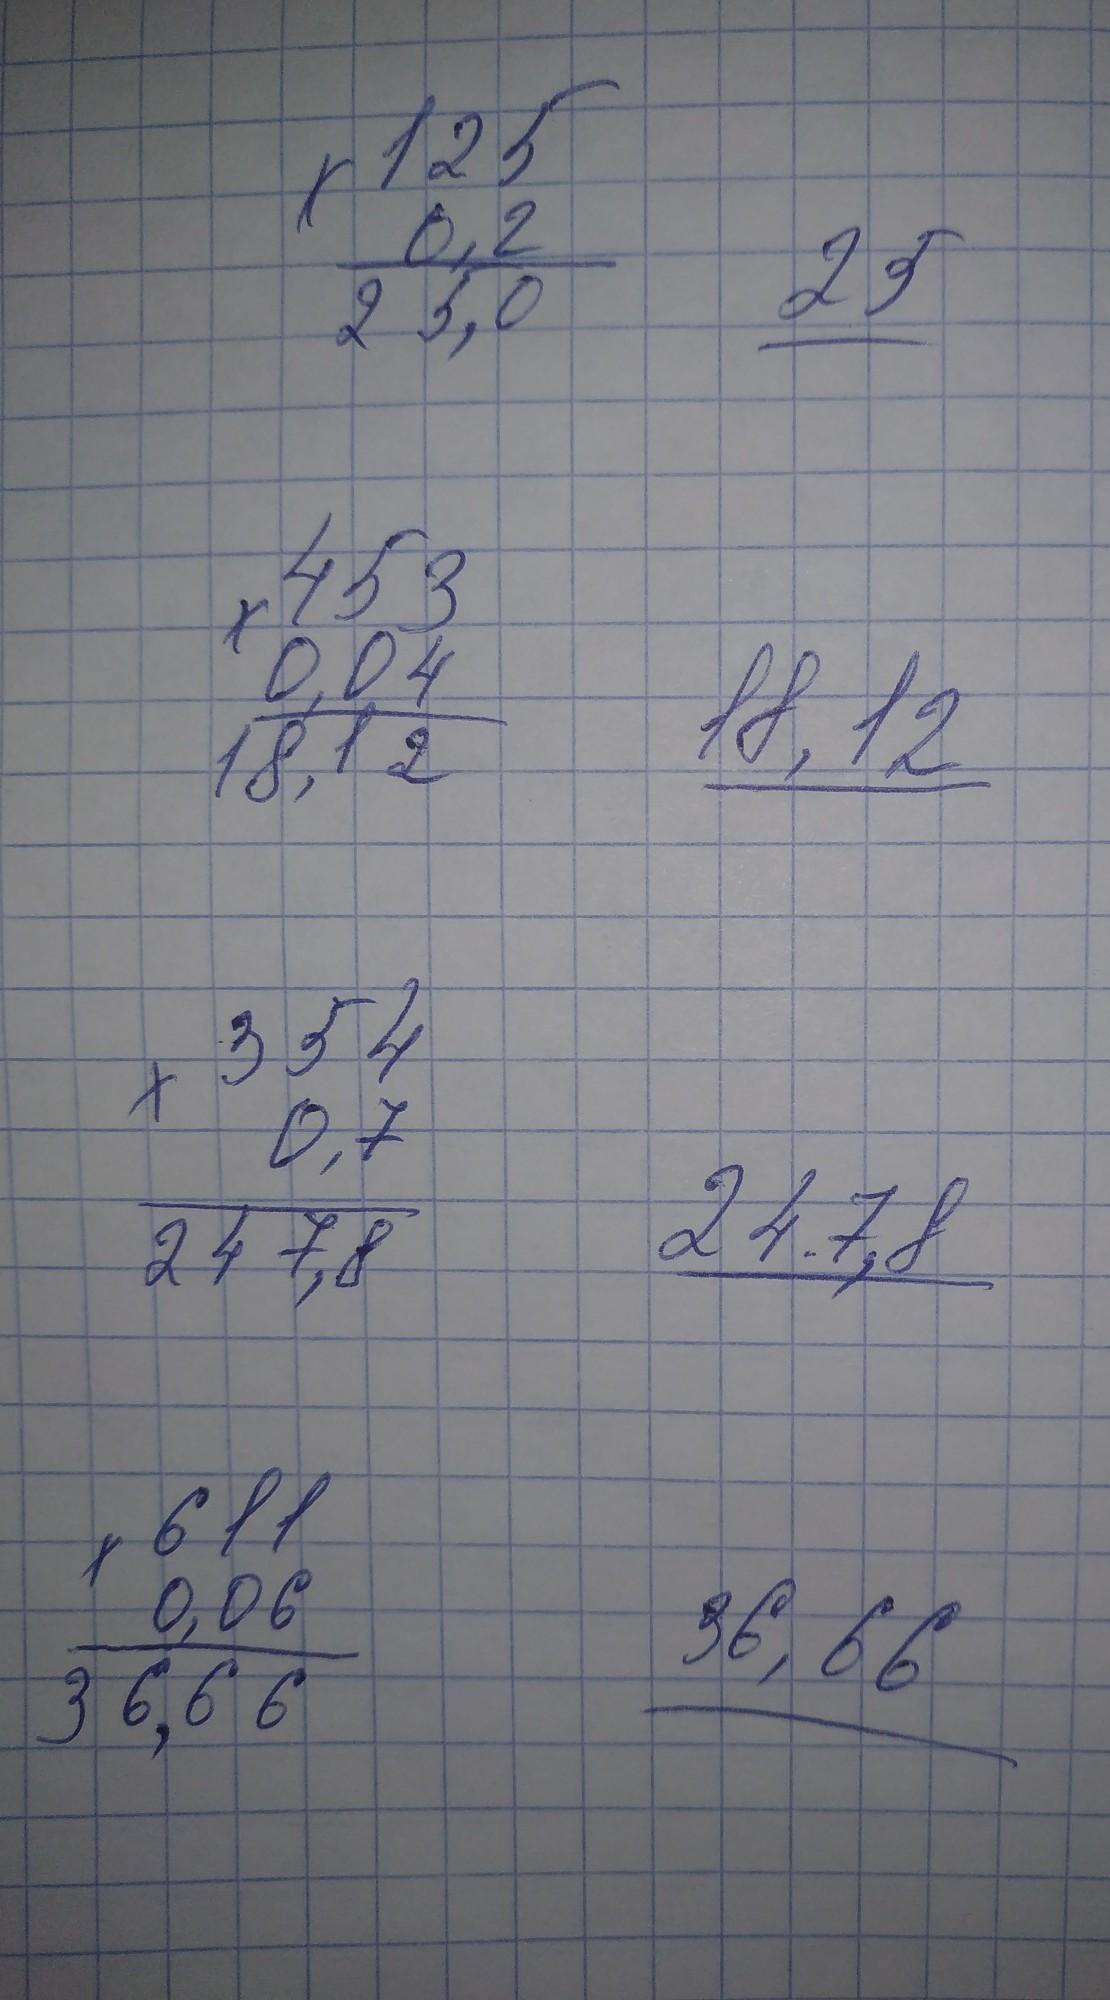 × 125
0,2
25,0
25
× 453
0,04
18,12
18,12
× 354
0,7
247,8
247,8
× 611
0,06
36,66
36,66